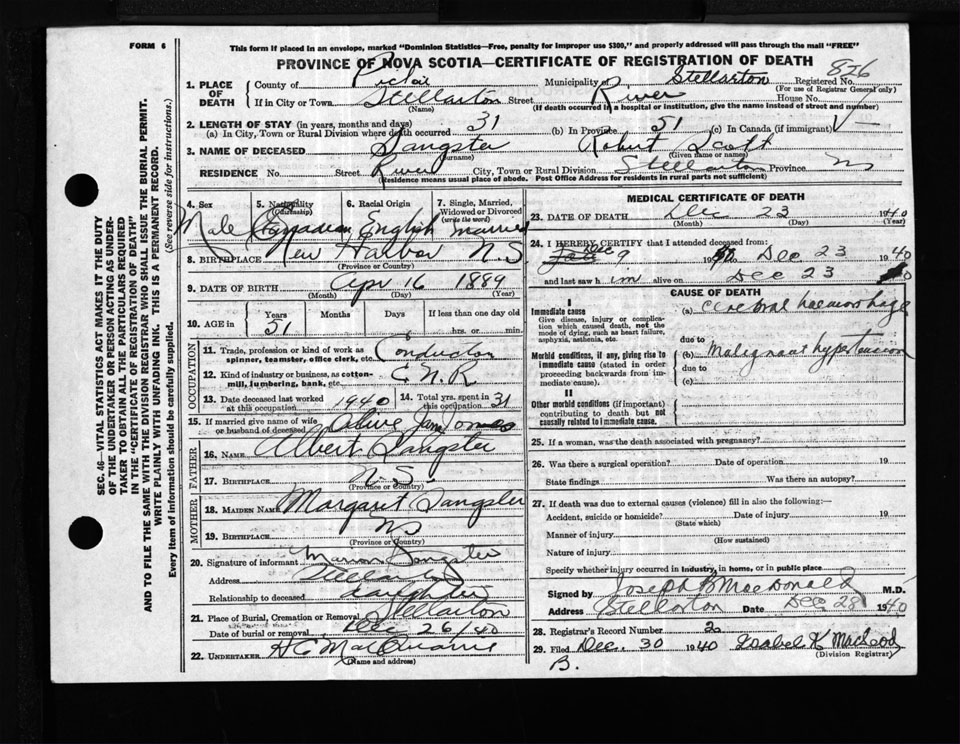 FORM 6
This form if placed in an envelope, marked "Dominion Statistics—Free, penalty for improper use $300," and properly addressed will pass through the mail "FREE"
PROVINCE OF NOVA SCOTIA—CERTIFICATE OF REGISTRATION OF DEATH
856
1. PLACE OF DEATH
County of Pictou Municipality of Stellarton Registered No.
(For use of Registrar General only)
If in City or Town Stellarton Street River House No.
(Name) (If death occurred in a hospital or institution, give the name instead of street and number)
2. LENGTH OF STAY (in years, months and days)
(a) In City, Town or Rural Division where death occurred 31 (b) In Province 51 (c) In Canada (if immigrant)
3. NAME OF DECEASED Sangster Robert Scott
(Surname) (Given name or names)
RESIDENCE No. River Street City, Town or Rural Division Stellarton Province NS
(Residence means usual place of abode. Post Office Address for residents in rural parts not sufficient)
4. Sex
Male
5. Nationality (Citizenship)
Canadian
6. Racial Origin
English
7. Single, Married, Widowed or Divorced (write the word)
married
8. BIRTHPLACE New Harbor N.S
(Province or Country)
9. DATE OF BIRTH Apr 16 1889
(Month) (Day) (Year)
10. AGE in Years Months Days If less than one day old
51 hrs. or min.
OCCUPATION
11. Trade, profession or kind of work as spinner, teamster, office clerk, etc. Conductor
12. Kind of industry or business, as cotton-mill, lumbering, bank, etc. C N R
13. Date deceased last worked at this occupation 1940
14. Total yrs. spent in this occupation 31
15. If married give name of wife or husband of deceased Olive Jane
FATHER
16. NAME Albert Sangster
17. BIRTHPLACE N.S.
(Province or Country)
MOTHER
18. MAIDEN NAME Margaret Sangster
19. BIRTHPLACE NS
(Province or Country)
20. Signature of informant Marion Sangster
Address Stellarton
Relationship to deceased daughter
21. Place of Burial, Cremation or Removal Stellarton
Date of burial or removal Dec 26/40
22. UNDERTAKER H C MacQuarrie
(Name and address)
MEDICAL CERTIFICATE OF DEATH
23. DATE OF DEATH Dec 23 1940
(Month) (Day) (Year)
24. I HEREBY CERTIFY that I attended deceased from:
Dec 9 1940 to Dec 23 1940
and last saw him alive on Dec 23 40
CAUSE OF DEATH
I
Immediate cause
Give disease, injury or complication which caused death, not the mode of dying, such as heart failure, asphyxia, asthenia, etc.
(a) Cerebral haemorrhage
due to
Morbid conditions, if any, giving rise to immediate cause (stated in order proceeding backwards from immediate cause).
(b) Malignant hypertension
due to
(c)
II
Other morbid conditions (if important) contributing to death but not causally related to immediate cause.
25. If a woman, was the death associated with pregnancy?
26. Was there a surgical operation? Date of operation 19
State findings Was there an autopsy?
27. If death was due to external causes (violence) fill in also the following:—
Accident, suicide or homicide? Date of injury 19
(State which)
Manner of injury
(How sustained)
Nature of injury
Specify whether injury occurred in Industry, in home, or in public place
Signed by Joseph B MacDonald M.D.
Address Stellarton Date Dec 28 1940
28. Registrar's Record Number
29. Filed Dec. 30 1940 Isabel K MacLeod
(Division Registrar)
B.
SEC. 46—VITAL STATISTICS ACT MAKES IT THE DUTY
OF THE UNDERTAKER OR PERSON ACTING AS UNDER-
TAKER TO OBTAIN ALL THE PARTICULARS REQUIRED
IN THE "CERTIFICATE OF REGISTRATION OF DEATH"
AND TO FILE THE SAME WITH THE DIVISION REGISTRAR WHO SHALL ISSUE THE BURIAL PERMIT.
WRITE PLAINLY WITH UNFADING INK. THIS IS A PERMANENT RECORD.
Every item of information should be carefully supplied. (See reverse side for instructions.)